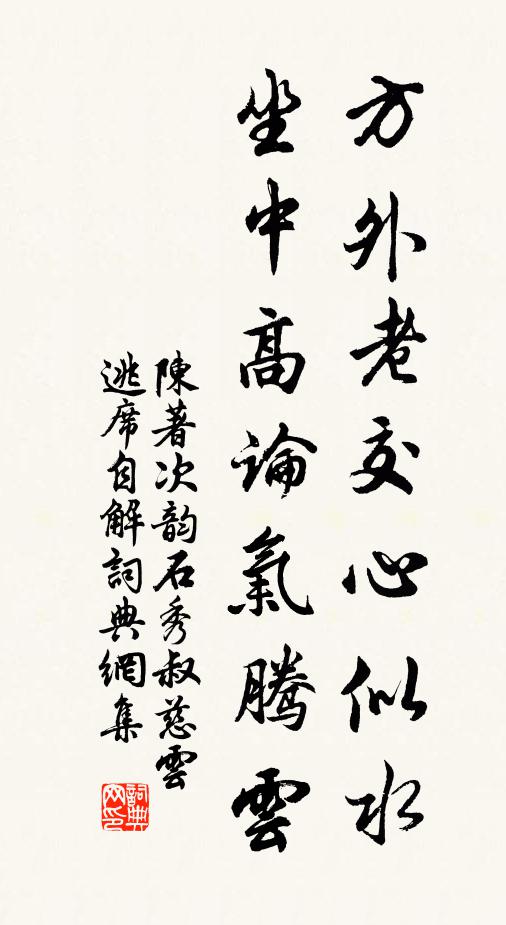 方外老交心似水
坐中高論氣騰雲
陳著次韵石秀叔慈雲
逃席自解詞典網集
詞典网印